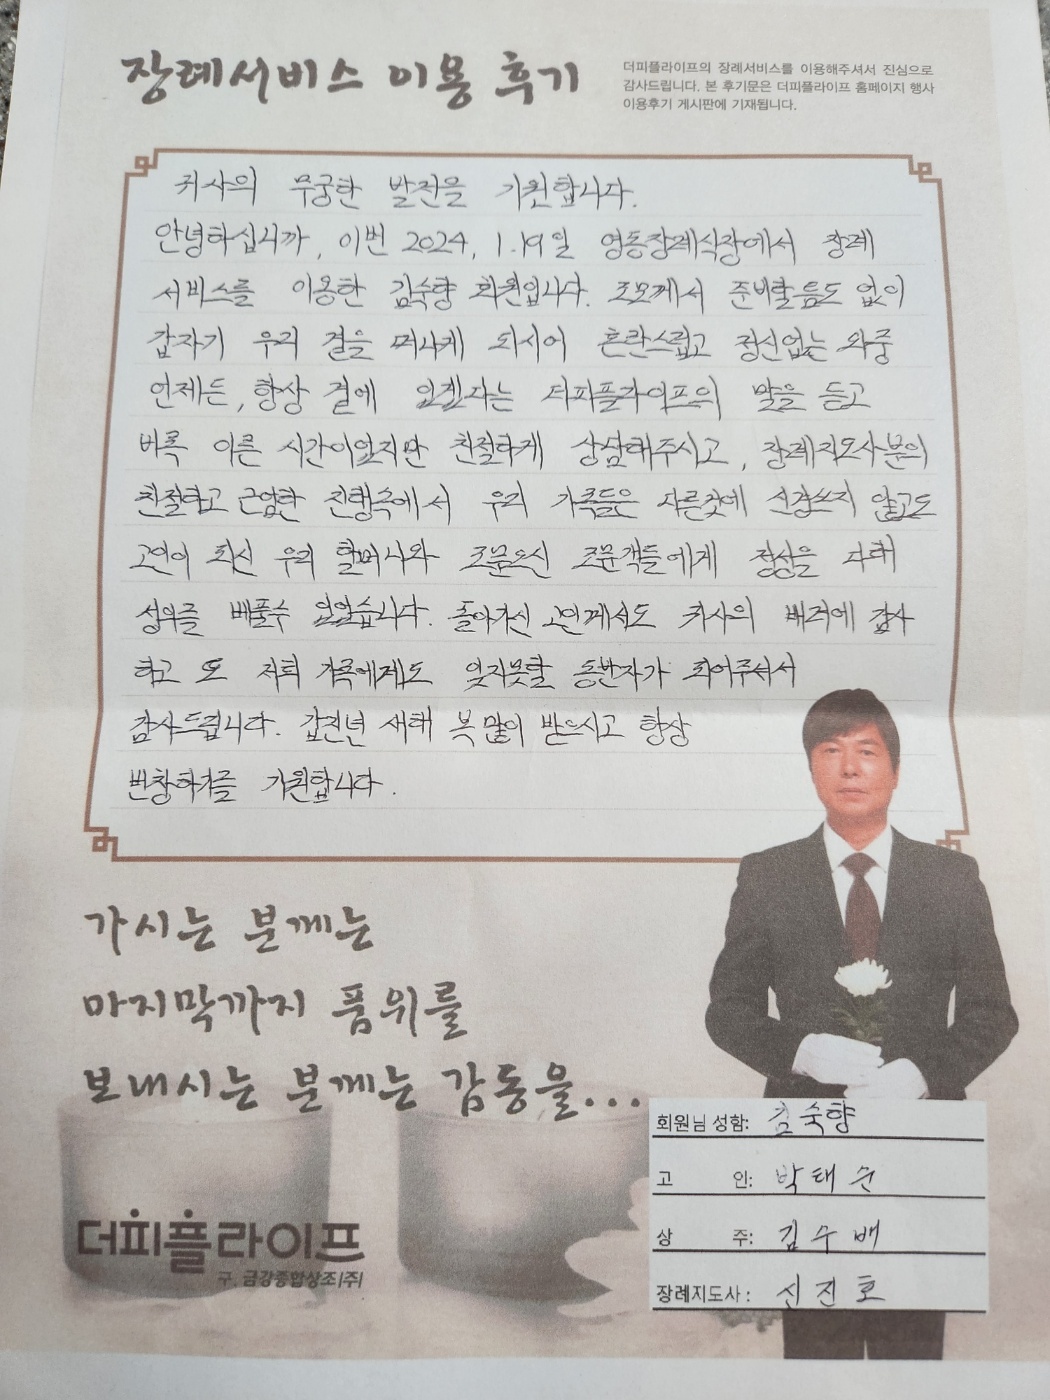 장례서비스 이용 후기
더피플라이프의 장례서비스를 이용해주셔서 진심으로
감사드립니다. 본 후기문은 더피플라이프 홈페이지 행사
이용후기 게시판에 기재됩니다.
귀사의 무궁한 발전을 기원합니다.
안녕하십니까, 이번 2024, 1.19일 영동장례식장에서 장례
서비스를 이용한 김숙향 회원입니다. 조모께서 준비할틈도 없이
갑자기 우리 곁을 떠나게 되시어 혼란스럽고 정신없는 와중
언제든, 항상 곁에 있겠다는 더피플라이프의 말을 듣고
비록 이른 시간이였지만 친절하게 상담해주시고, 장례지도사분의
친절하고 근엄한 진행속에서 우리 가족들은 다른것에 신경쓰지 않고도
고인이 되신 우리 할머니와 조문오신 조문객들에게 정성을 다해
성의를 베풀수 있었습니다. 돌아가신 고인께서도 귀사의 배려에 감사
하고 또 저희 가족에게도 잊지못할 동반자가 되어주셔서
감사드립니다. 갑진년 새해 복 많이 받으시고 항상
번창하기를 기원합니다.
가시는 분께는
마지막까지 품위를
보내시는 분께는 감동을...
회원님 성함: 김숙향
고 인: 박태순
상 주: 김수배
장례지도사 : 신진호
더피플라이프
구. 금강종합상조(주)